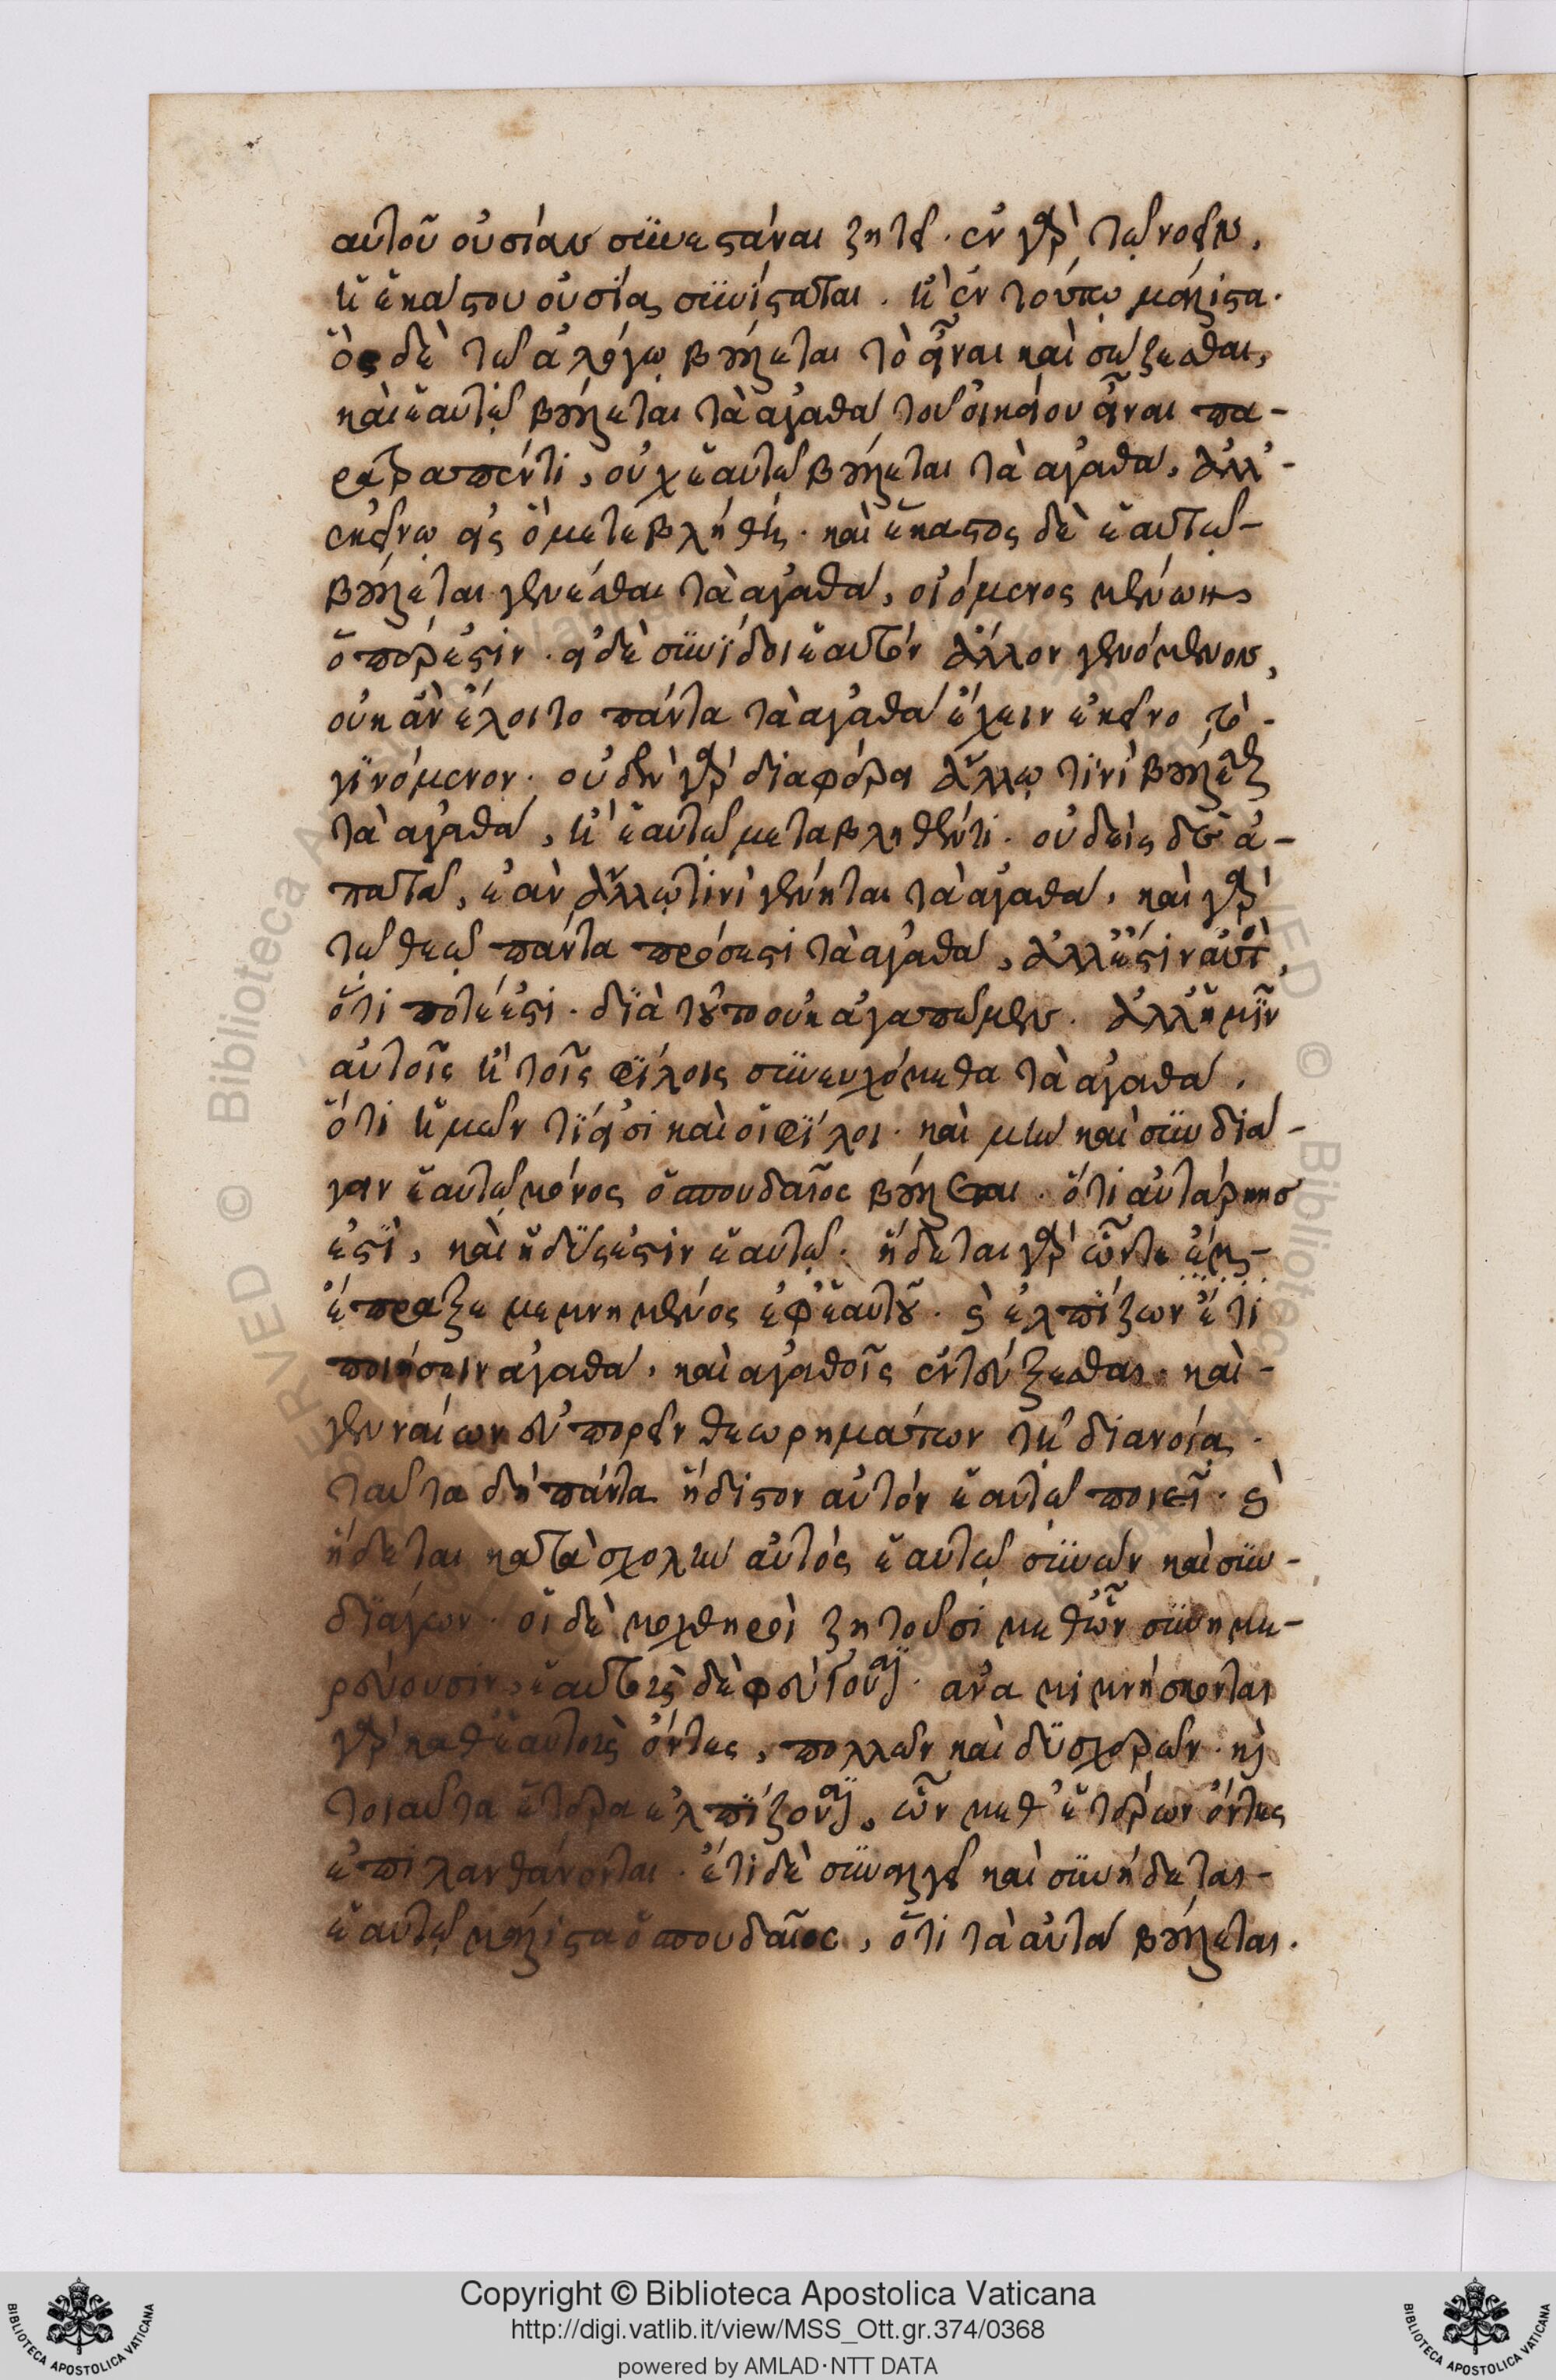 αὐτοῦ οὐσίαν συνεστάναι ζητεῖ. ἐν γὰρ τῷ νοεῖν,
ἡ ἑκάστου οὐσία συνίσταται. ἢ ἐν τούτῳ μάλιστα.
ὃς δὲ τῷ ἀλόγῳ βούλεται τὸ εἶναι καὶ σώζεσθαι,
καὶ ἑαυτῷ βούλεται τὰ ἀγαθὰ τοῦ οἰκείου εἶναι πα-
ρατραπέντι, οὐχ ἑαυτῷ βούλεται τὰ ἀγαθά, ἀλλ'-
ἐκείνῳ εἰς ὃ μετεβλήθη. καὶ ἕκαστος δὲ ἑαυτῷ-
βούλεται γενέσθαι τὰ ἀγαθά, οἰόμενος μένων
ὅπερ ἐστίν. εἰ δὲ συνίδοι ἑαυτὸν ἄλλον γενόμενον,
οὐκ ἂν ἕλοιτο πάντα τὰ ἀγαθὰ ἔχειν ἐκεῖνο τὸ-
γινόμενον. οὐδὲν γὰρ διαφέρει ἄλλῳ τινὶ βούλεσθαι
τὰ ἀγαθά, ἢ ἑαυτῷ μεταβληθέντι. οὐδεὶς δὲ ἀ-
γαπᾷ, ἐὰν ἄλλῳ τινὶ γένηται τὰ ἀγαθά. καὶ γὰρ
τῷ θεῷ πάντα πρόσεστι τὰ ἀγαθά, ἀλλ' ἔστιν αὐτὸ,
ὅτι ποτέ ἐστι. διὰ τοῦτο οὐκ ἀγαπῶμεν. ἀλλ' ἡμῖν
αὐτοῖς ἢ τοῖς φίλοις συνευχόμεθα τὰ ἀγαθά.
ὅτι ἡμῶν τί εἰσι καὶ οἱ φίλοι. καὶ μὴν καὶ συνδιά-
γειν ἑαυτῷ μόνος ὁ σπουδαῖος βούλεται. ὅτι αὐτάρκης
ἐστὶ, καὶ ἡδύς ἐστιν ἑαυτῷ. ἥδεται γὰρ ὧν τε
ἔπραξε μεμνημένος ἐφ' ἑαυτοῦ. καὶ ἐλπίζων ἔτι
ποιήσειν ἀγαθά, καὶ ἀγαθοῖς ἐντεύξεσθαι. καὶ-
γενναίων εὐπορεῖν θεωρημάτων τῇ διανοίᾳ.
ταῦτα δὴ πάντα ἥδιστον αὐτὸν ἑαυτῷ ποιεῖ. καὶ
ἥδεται κατὰ σχολὴν αὐτὸς ἑαυτῷ συνὼν καὶ συν-
διάγων. οἱ δὲ μοχθηροὶ ζητοῦσι μεθ' ὧν συνημε-
ρεύουσιν, ἑαυτοὺς δὲ φεύγουσι. ἀναμιμνήσκονται
γὰρ καθ' ἑαυτοὺς ὄντες, πολλῶν καὶ δυσχερῶν. καὶ
τοιαῦτα ἕτερα ἐλπίζουσι, ὧν μεθ' ἑτέρων ὄντες
ἐπιλανθάνονται. ἔτι δὲ συναλγεῖ καὶ συνήδεται-
ἑαυτῷ μάλιστα ὁ σπουδαῖος, ὅτι τὰ αὐτὰ βούλεται.
Copyright © Biblioteca Apostolica Vaticana
http://digi.vatlib.it/view/MSS_Ott.gr.374/0368
powered by AMLAD·NTT DATA